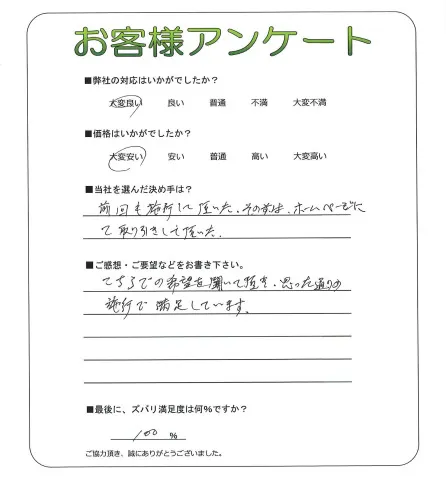 お客様アンケート
■弊社の対応はいかがでしたか?
大変良い 良い 普通 不満 大変不満
■価格はいかがでしたか?
大変安い 安い 普通 高い 大変高い
■当社を選んだ決め手は?
前回も施行して頂いた、その時は、ホームページに
て取り引きして頂いた。
■ご感想・ご要望などをお書き下さい。
こちらでの希望を聞いて頂き、思った通りの
施行で満足しています。
■最後に、ズバリ満足度は何%ですか?
100 %
ご協力頂き、誠にありがとうございました。